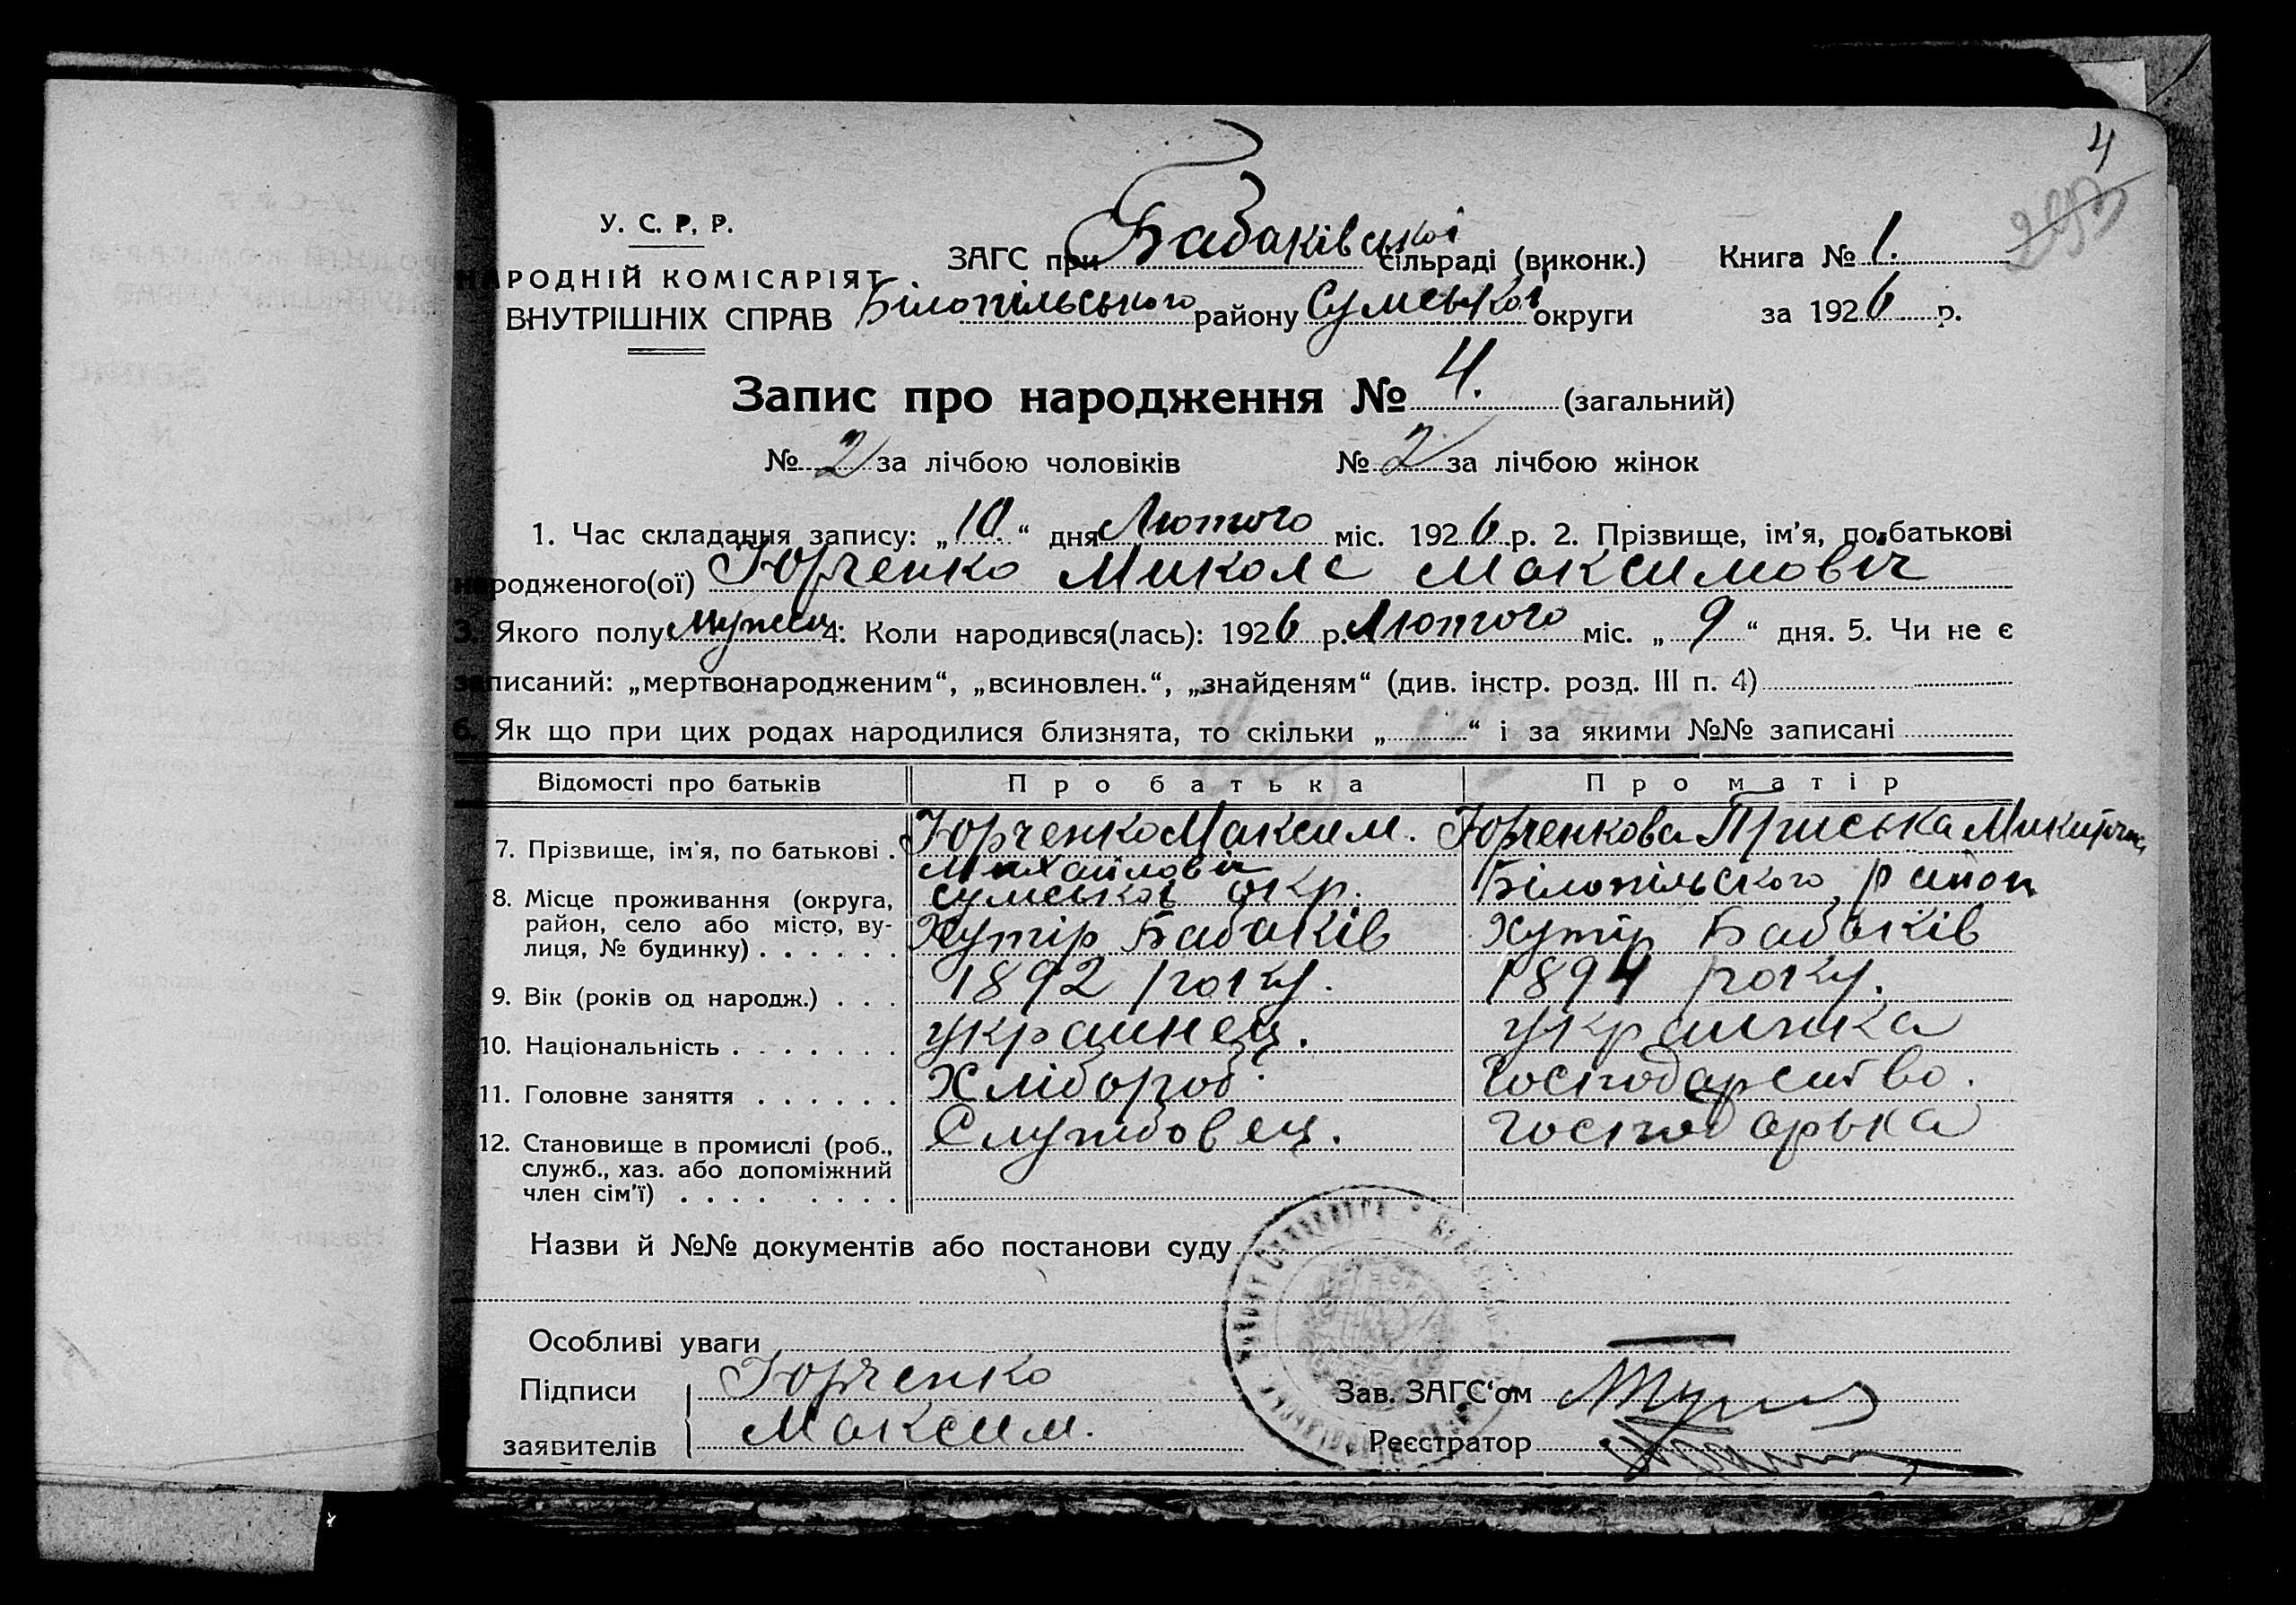 4
У. С. Р. Р.
НАРОДНІЙ КОМІСАРІЯТ
ВНУТРІШНІХ СПРАВ
ЗАГС при Бабаківської сільраді (виконк.) Книга № 1.
Білопільського району Сумської округи за 1926 р.
Запис про народження № 4. (загальний)
№ 2 за лічбою чоловіків № 2 за лічбою жінок
1. Час складання запису: „10.“ дня Лютого міс. 1926 р. 2. Прізвище, ім'я, по батькові
народженого(ої) Юрченко Миколс Максимовіч
3. Якого полу 4: Коли народився(лась): 1926 р. Лютого міс. „9“ дня. 5. Чи не є
записаний: „мертвонародженим“, „всиновлен.“, „знайденям“ (див. інстр. розд. III п. 4)
6. Як що при цих родах народилися близнята, то скільки „ “ і за якими №№ записані
Відомості про батьків Про батька Про матір
7. Прізвище, ім'я, по батькові . Юрченко Максим. Юрченкова Приська
Михайловіч
8. Місце проживання (округа, сумської окр. Білопільского район
район, село або місто, ву- Хутір Бабаків Хутір Бабаків
лиця, № будинку) . . . . . .
9. Вік (років од народж.) . . . 1892 року. 1894 року.
10. Національність . . . . . . . украинец. украинка
11. Головне заняття . . . . . . Хлібороб. господарство.
12. Становище в промислі (роб., Службовец. господарька
служб., хаз. або допоміжний
член сім'ї) . . . . . . . .
Назви й №№ документів або постанови суду
Особливі уваги
Підписи Юрченко Зав. ЗАГС'ом
заявителів Максим. Реєстратор